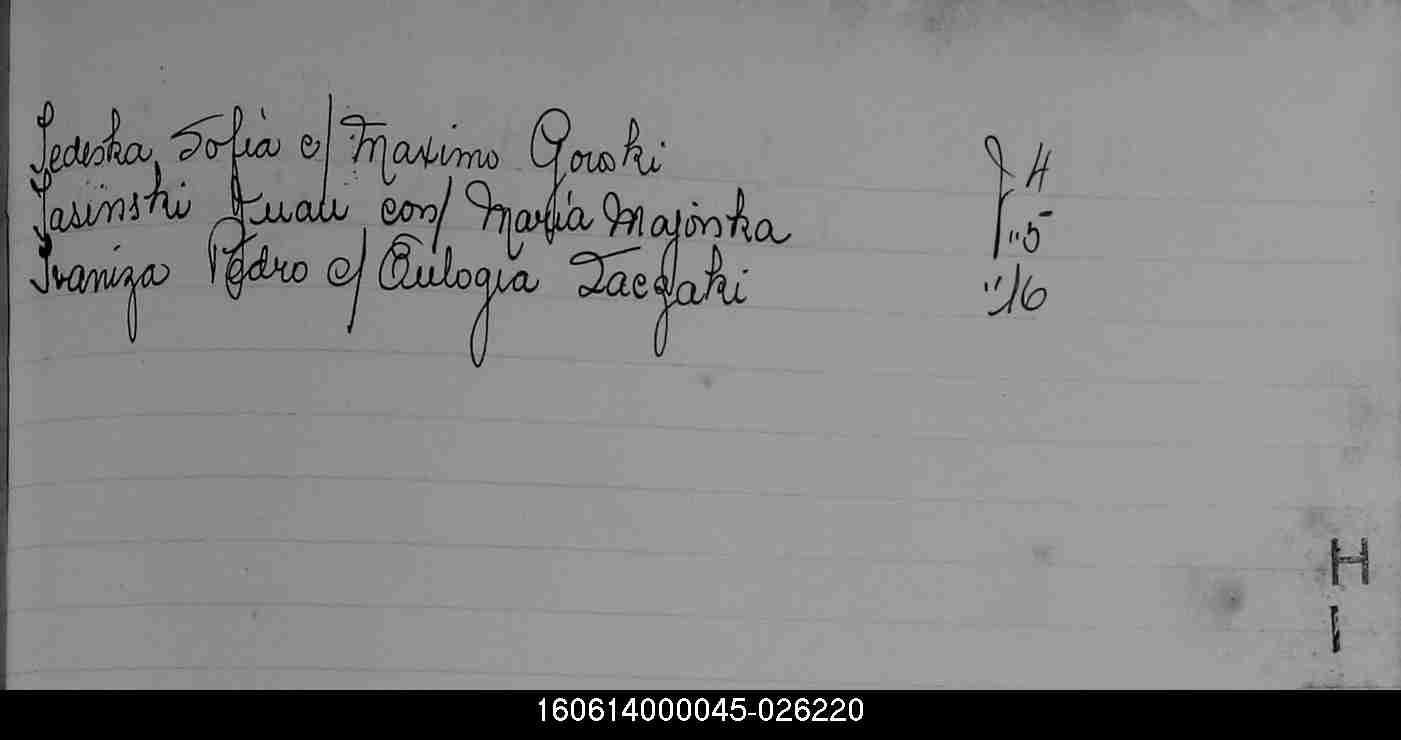 Jedeska, Sofia c/ Maximo Goroski
Jasinski Juan con/ Maria Majonska
Ivaniza Pedro c/ Eulogia Zaczaki
F 4
"5
"16
H
I
160614000045-026220